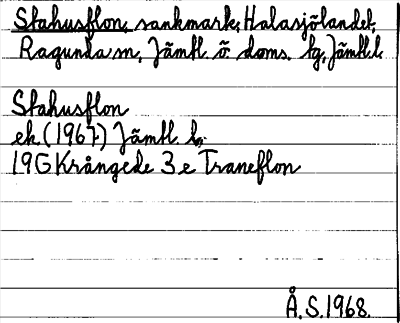 Stahusflon, sankmark, Halasjölandet,
Ragunda sn, Jämtl. ö doms. tg, Jämtl. l.
Stahusflon
ek. (1967) Jämtl. l,
19G Krångede 3 e Traneflon
Å. S. 1968.